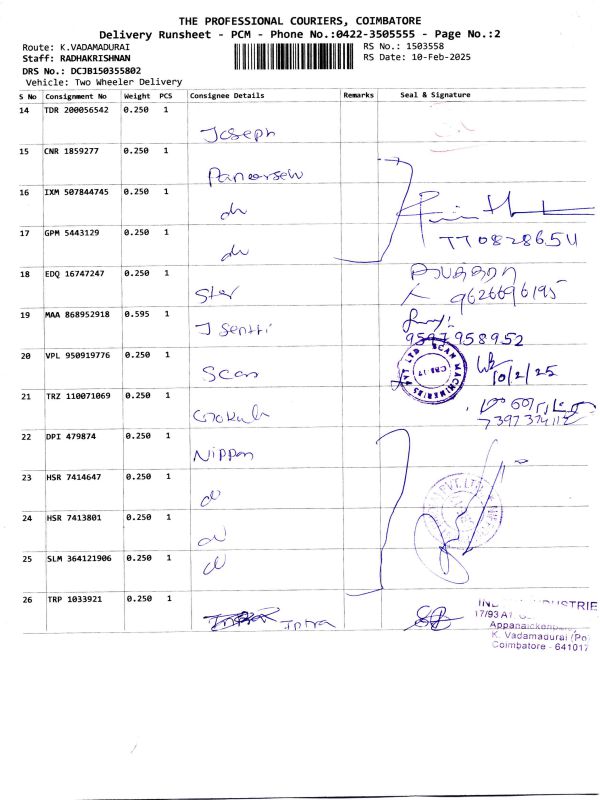 THE PROFESSIONAL COURIERS, COIMBATORE
Delivery Runsheet - PCM - Phone No.:0422-3505555 - Page No.:2
Route: K.VADAMADURAI
RS No.: 1503558
Staff: RADHAKRISHNAN
RS Date: 10-Feb-2025
DRS No.: DCJB150355802
Vehicle: Two Wheeler Delivery
S No Consignment No Weight PCS Consignee Details Remarks Seal & Signature
14 TDR 200056542 0.250 1 Joseph
15 CNR 1859277 0.250 1
16 IXM 507844745 0.250 1 do
17 GPM 5443129 0.250 1 do
TT0828654
18 EDQ 16747247 0.250 1 Star
9626696195
19 MAA 868952918 0.595 1 J Senthi
9597958952
20 VPL 950919776 0.250 1 Scan
SCAN MACHINERIES PVT LTD
10/2/25
21 TRZ 110071069 0.250 1 Gokul
22 DPI 479874 0.250 1 Nippon
23 HSR 7414647 0.250 1 d
24 HSR 7413801 0.250 1 d
PVT. LTD
25 SLM 364121906 0.250 1 d
26 TRP 1033921 0.250 1 Intra
17/93 A1
K. Vadamadurai (Po
Coimbatore - 641017